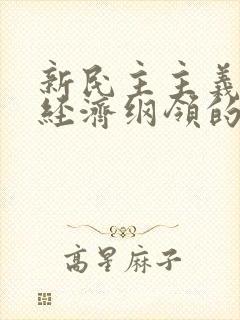 新民主主義
経濟纲領的
高星麻子